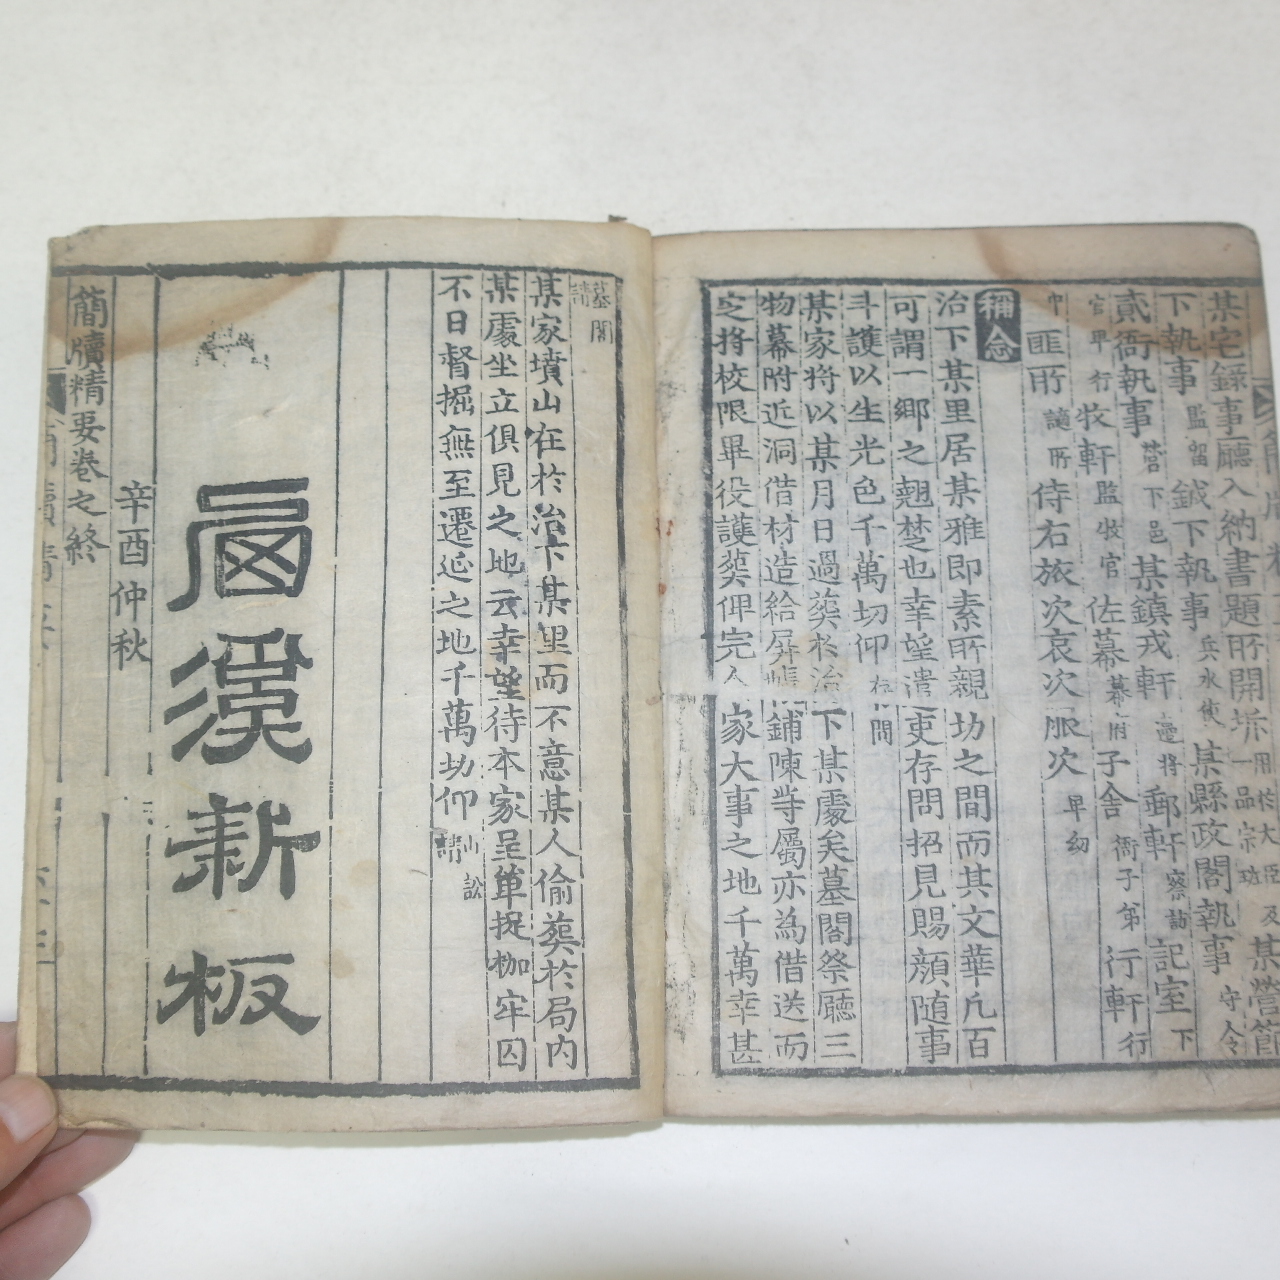 某宅錄事廳入納書題所開坼
下執事 鉞下執事 兵水使 某縣政閣執事 守令
貳衙執事 營下邑 某鎮戎軒 邊將 郵軒 察訪 記室 下
官卑行 牧軒 監牧官 佐幕 幕府 子舍 衙子弟 行軒 行
中 匪所 謫所 侍右 旅次 哀次 服次 卑幼
稱念
治下某里居某雅即素所親坊之間而其文華凡百
可謂一鄉之翹楚也幸望遣吏存問招見賜顔隨事
斗護以生光色千萬切仰 存問
某家將以某月日過葬於治下某處矣墓閣祭廳三
物幕附近洞借材造給屏帳鋪陳等屬亦為借送而
定將校限畢役護葬俾完人家大事之地千萬幸甚
墓閣請
某家墳山在於治下某里而不意某人偷葬於局内
某處坐立俱見之地云幸望待本家呈單捉枷牢囚
不日督掘無至遷延之地千萬切仰 山訟請
漢新板
辛酉仲秋
簡牘精要卷之終